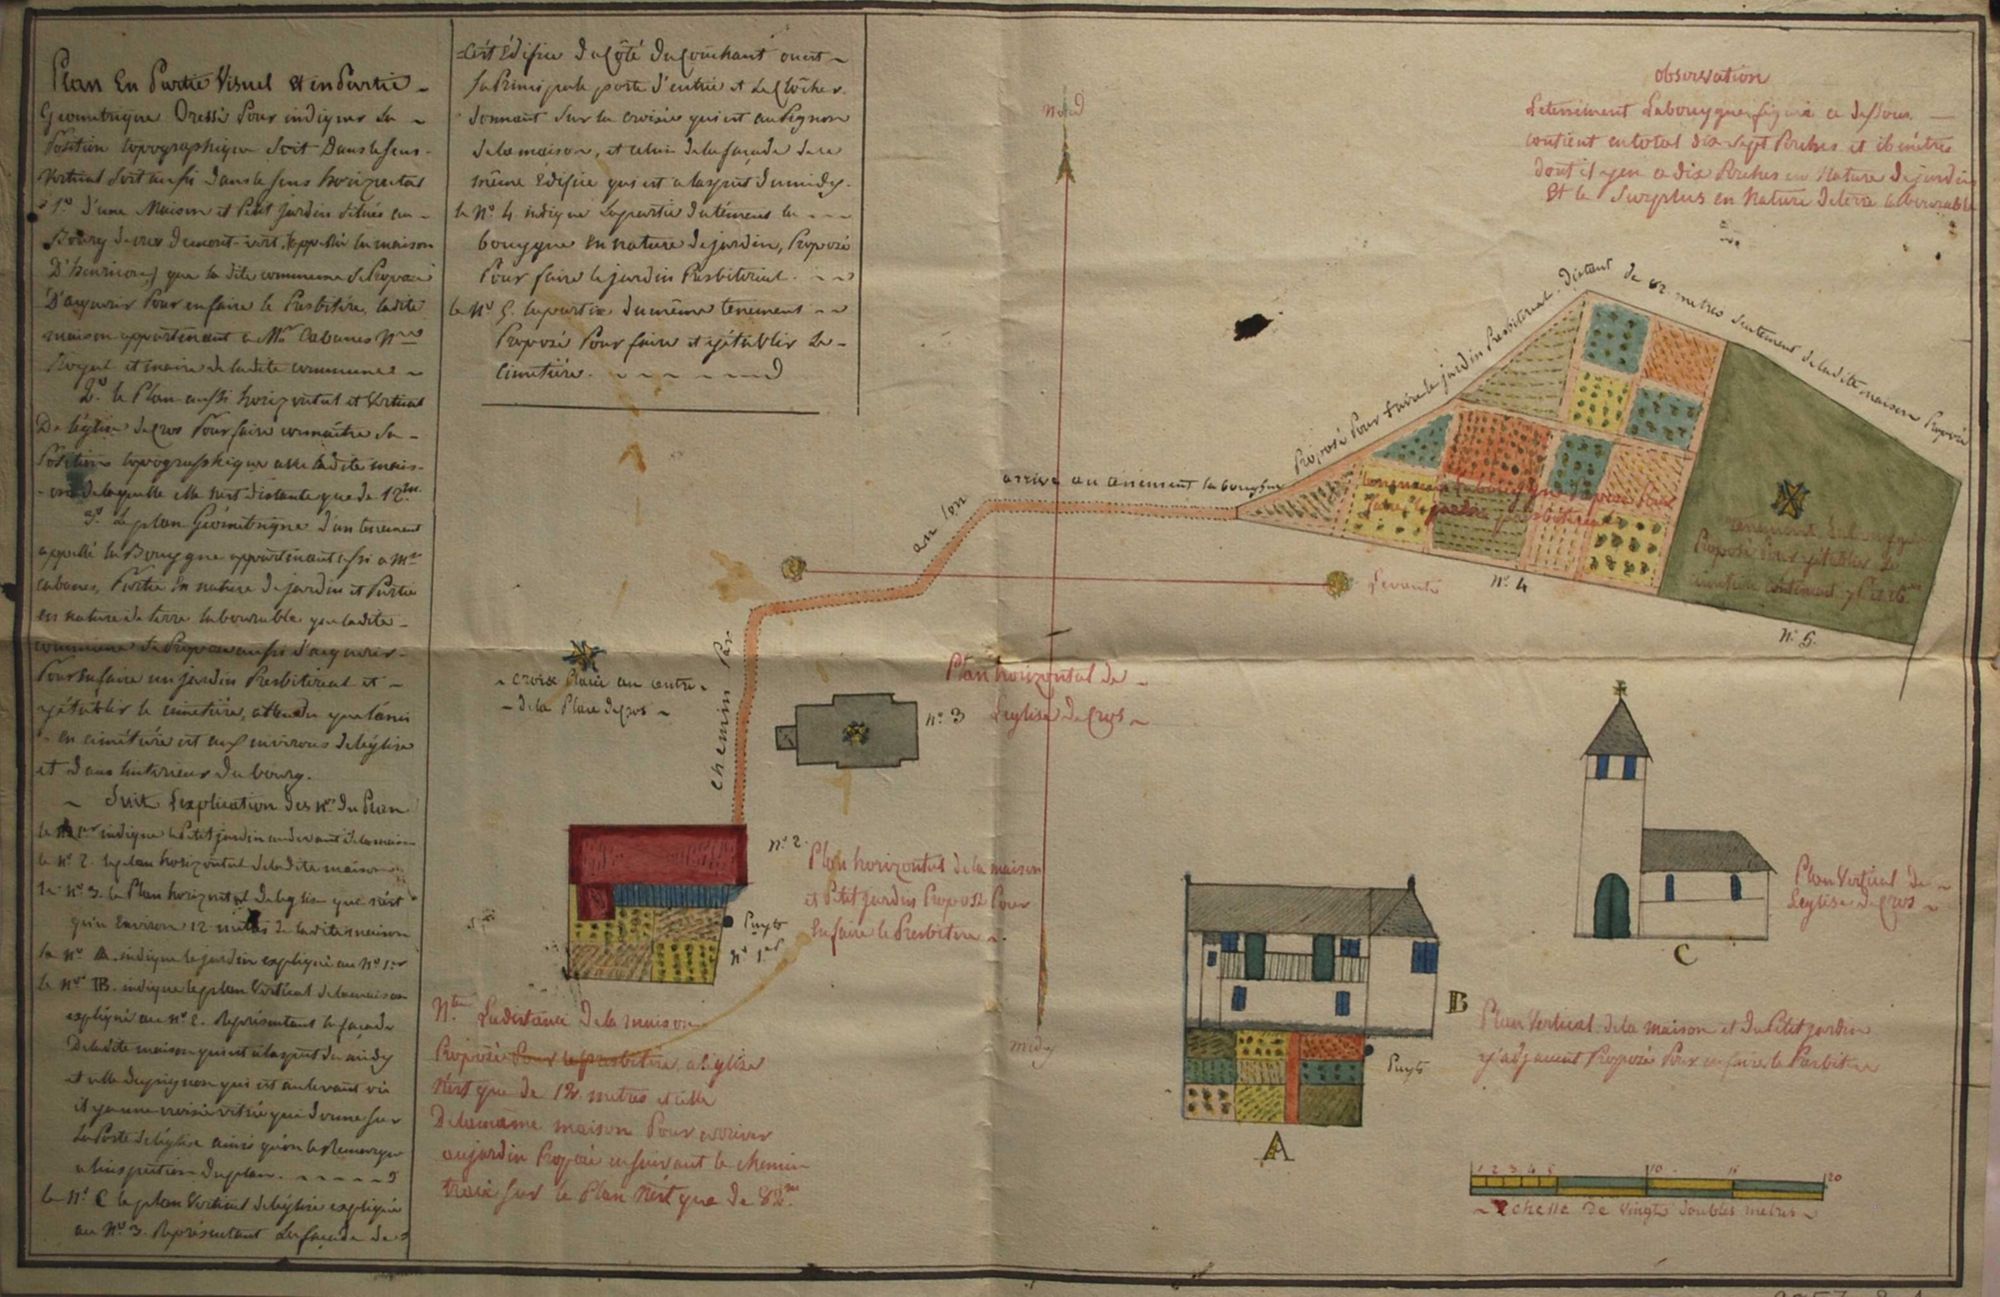 Plan En Partie Visuel Et en Partie
Geometrique Dressé Pour indiquer La
Position topographique Soit Dans le Sens
Vertical Soit aussi dans le sens horizontal
1º d'une Maison et Petit jardin situés au
Bourg de cros demont-vert, appellée la maison
que la dite commune se Propose
D'acquerir Pour en faire le Presbitère, ladite
maison appartenant a Mr Cabanes
Royal et maire de ladite commune
2º le Plan aussi horizontal et Vertical
De léglise de Cros Pour faire connaître Sa
Position topographique avec ladite mais-
-on de laquelle elle n'est distante que de 12 m.
3º Le plan Géométrique d'un tenement
appellé la Bouygue appartenant aussi a Mr
Cabanes, Partie En nature de jardin et Partie
en nature de terre labourable que la dite
commune se Propose aussi d'acquerir
Pour En faire un jardin Presbiterial et
y établir le cimetière, attendu que l'anci-
-en cimetière est aux environs de léglise
et dans linterieur du bourg.
Suit L'explication des Nos du Plan
le No 1er indique le Petit jardin au devant de la maison
le No 2. le plan horizontal de la dite maison
le No 3. le Plan horizontal de léglise que n'est
qu'a Environ 12 mètres de la dite maison
le No A. indique le jardin expliqué au No 1er
le No B. indique le plan Vertical de la maison
expliqué au No 2. Représentant la façade
De la dite maison qui est a laspect du midy
et celle du pignon qui est au levant où
il y a une croisée vitrée qui donne sur
La Porte de léglise ainsi qu'on le Remarque
a linspection du plan.
le No C le plan Vertical de léglise expliqué
au No 3. Représentant La façade de
cet Edifice du Côté du Couchant ouest
la Principale porte d'entrée et Le Clocher
donnant Sur la croisée qui est au Pignon
de la maison, et celui de la façade de ce
même Edifice qui est a laspect du midy.
le No 4 indique La partie du tènement la
bouygue en nature de jardin, Proposé
Pour faire le jardin Presbiterial.
le No 5. la partie du même tenement
Proposé Pour faire et y établir Le
cimetière.
Nord
observation
Le tenement Labouygue figuré ci dessous
contient en total dix Sept Perches et 16 mètres
dont il y en a dix Perches en Nature de jardin
Et le Surplus en Nature de terre labourable
Proposé Pour faire le jardin Presbiterial. Distant de 82 metres Seulement de ladite maison Proposée
arrive au tènement la bouygue
an lon
chemin Par
tenement Labouygue Proposé Pour
faire le jardin presbiterial
tenement Labouygue
Proposé Pour y établir Le
cimetière contenant 7 P. et 16 m
No 4
No 5.
Levant
croix Placée au centre
de la Place de Cros
No 3
Plan horizontal de
Leglise de Cros
No 2.
Plan horizontal de la maison
et Petit jardin Proposé Pour
En faire le Presbitere
Puyts
No 1er
Nta La distance de la maison
Proposée Pour le presbitère a léglise
n'est que de 12 metres et celle
De la même maison Pour arriver
au jardin Proposé en suivant le chemin
tracé sur le Plan n'est que de 82 m
midy
Plan Vertical de
Leglise de Cros
C
B
Plan Vertical de la maison et du Petit jardin
y adjacent Proposée Pour en faire le Presbitere
Puyts
A
1 2 3 4 5 10 15 20
Echelle de Vingt doubles metres